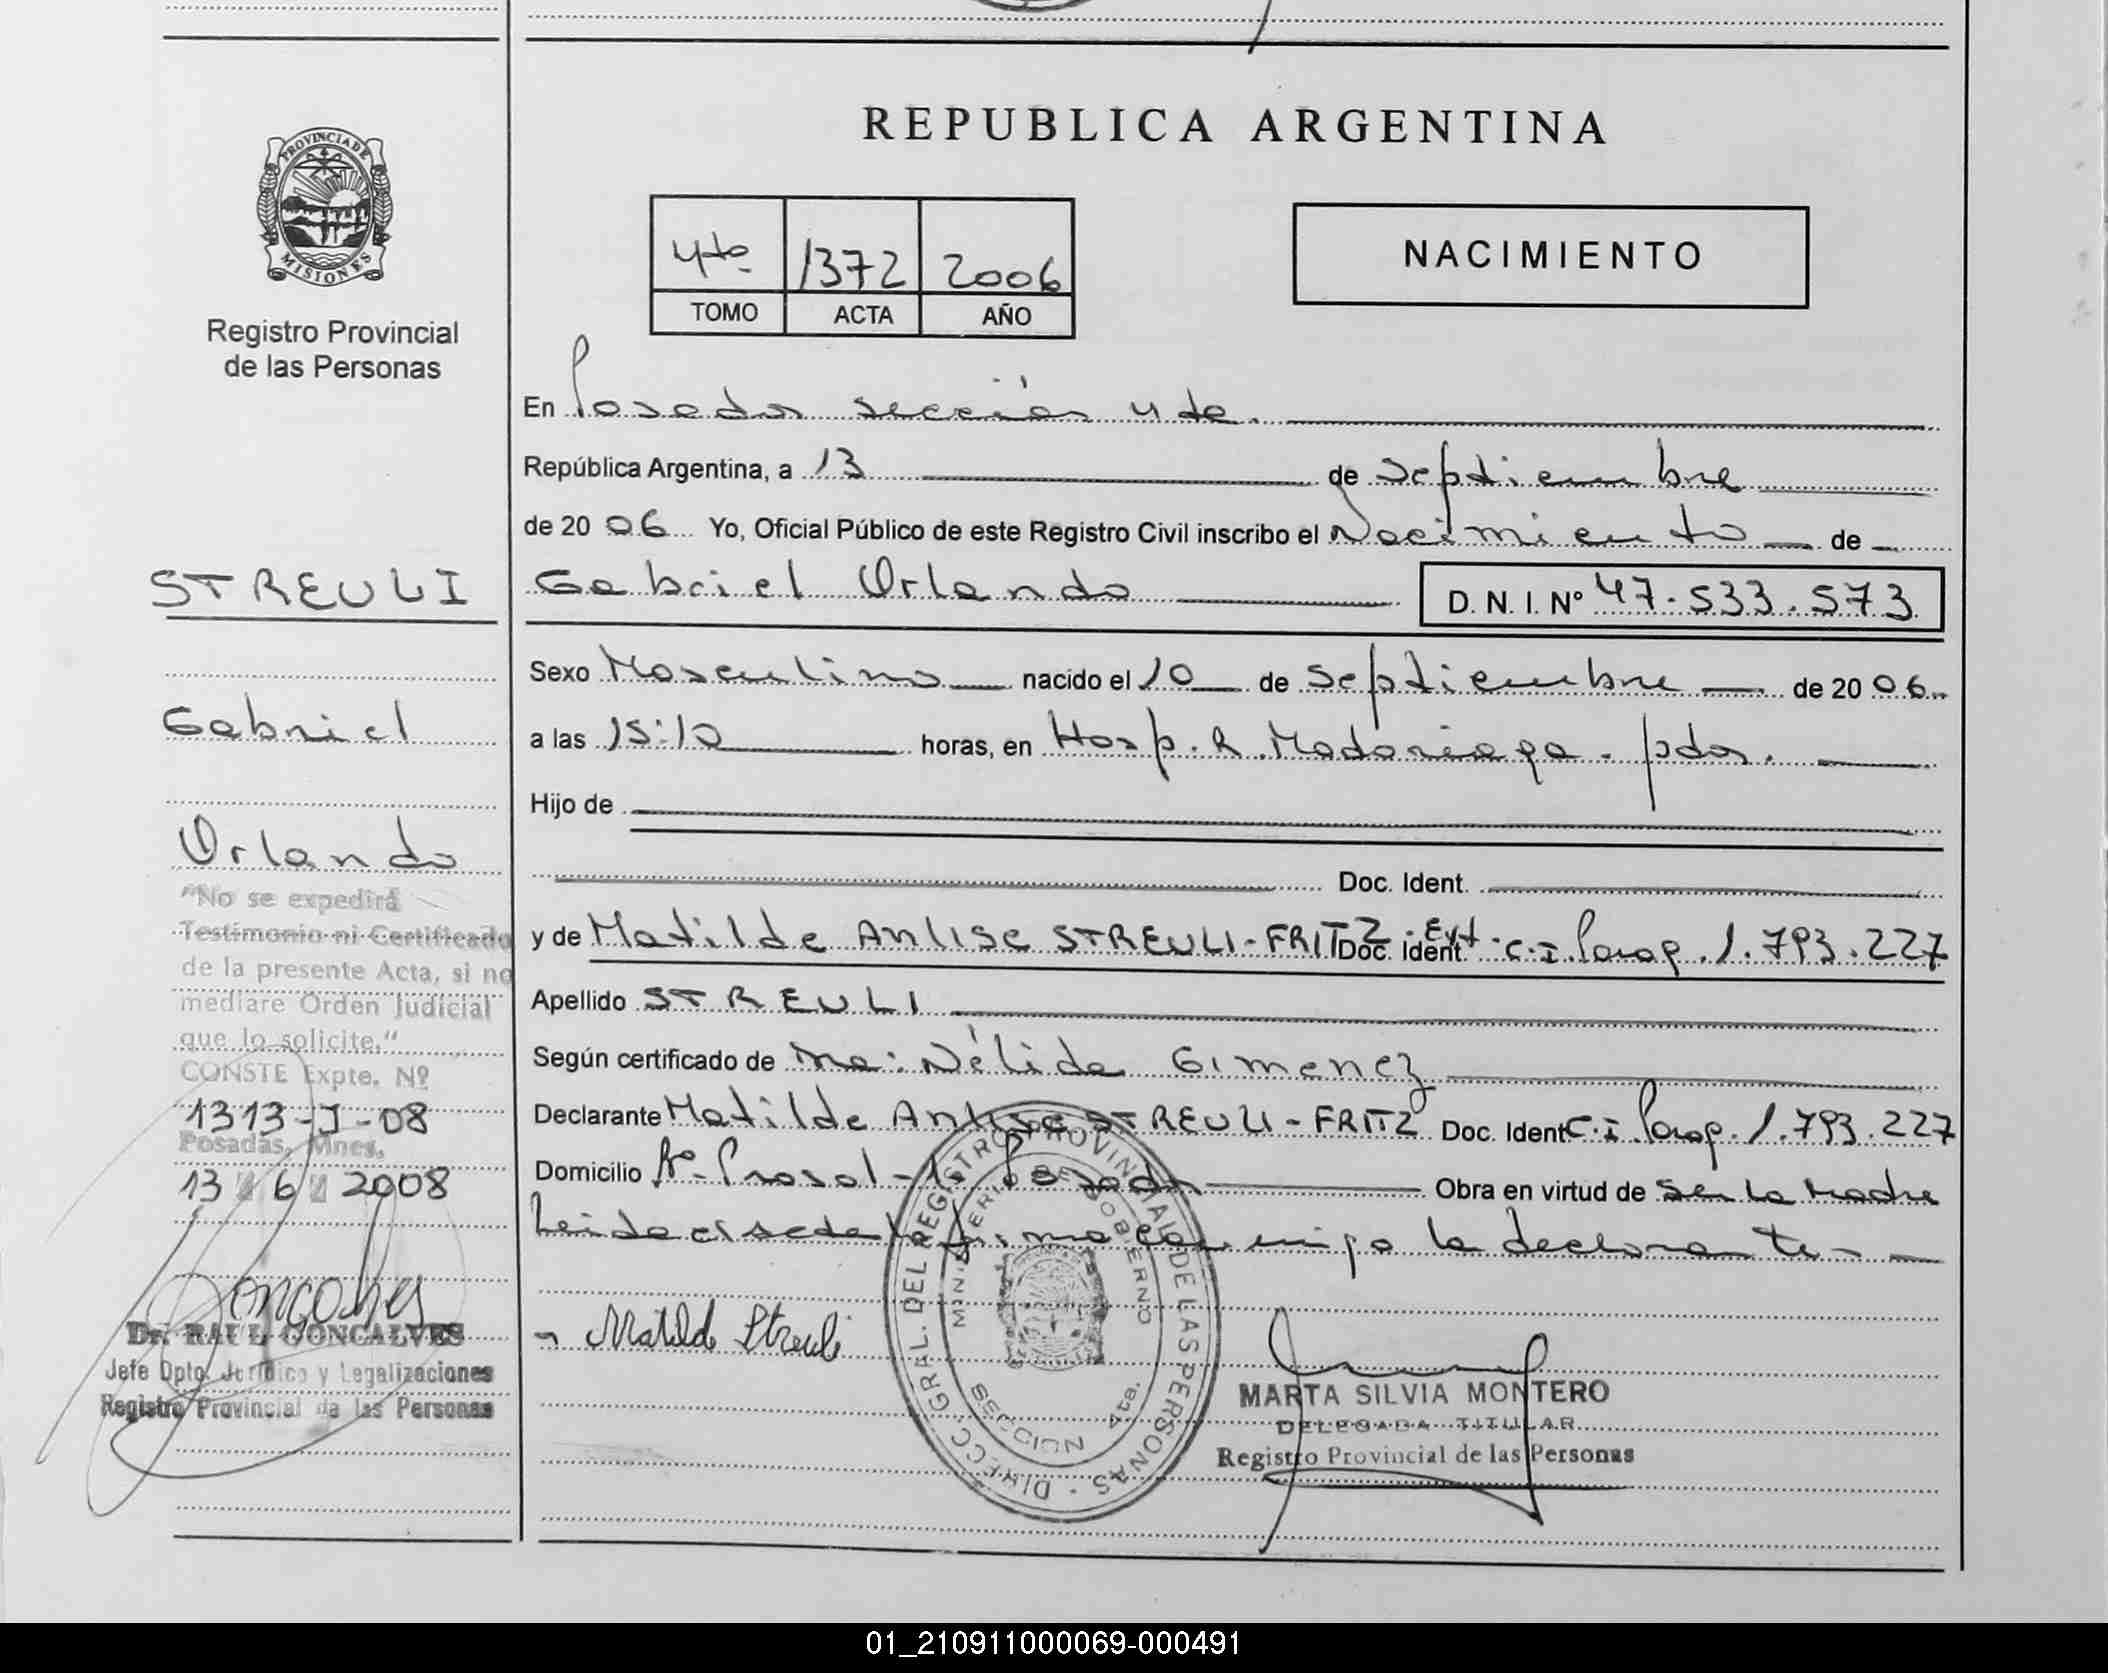 REPUBLICA ARGENTINA
PROVINCIA DE MISIONES
Registro Provincial
de las Personas
4to 1372 2006
TOMO ACTA AÑO
NACIMIENTO
En Posadas sección 4ta.
República Argentina, a 13 de Septiembre
de 20 06 Yo, Oficial Público de este Registro Civil inscribo el Nacimiento de
Gabriel Orlando D. N. I. Nº 47.533.573
Sexo Masculino nacido el 10 de Septiembre de 20 06
a las 15:10 horas, en Hosp. R. Madariaga - pdas.
Hijo de
Doc. Ident.
y de Matilde Anlise STREULI-FRITZ Doc. Ident. Ext. C.I. Parag. 1.793.227
Apellido STREULI
Según certificado de Ma: Nélida Gimenez
Declarante Matilde Anlise STREULI-FRITZ Doc. Ident C.I. Parag. 1.793.227
Domicilio Posadas Obra en virtud de ser la Madre
Leida firma conmigo la declarante
Matilde Streuli
DIRECC. GRAL. DEL REGISTRO PROVINCIAL DE LAS PERSONAS
MINISTERIO DE GOBIERNO
SECCION 4ta.
MARTA SILVIA MONTERO
DELEGADA TITULAR
Registro Provincial de las Personas
STREULI
Gabriel
Orlando
"No se expedirá
Testimonio ni Certificado
de la presente Acta, si no
mediare Orden Judicial
que lo solicite."
CONSTE Expte. Nº
1313-J-08
Posadas, Mnes,
13 6 2008
Dr. RAUL GONCALVES
Jefe Dpto. Jurídico y Legalizaciones
Registro Provincial de las Personas
01_210911000069-000491